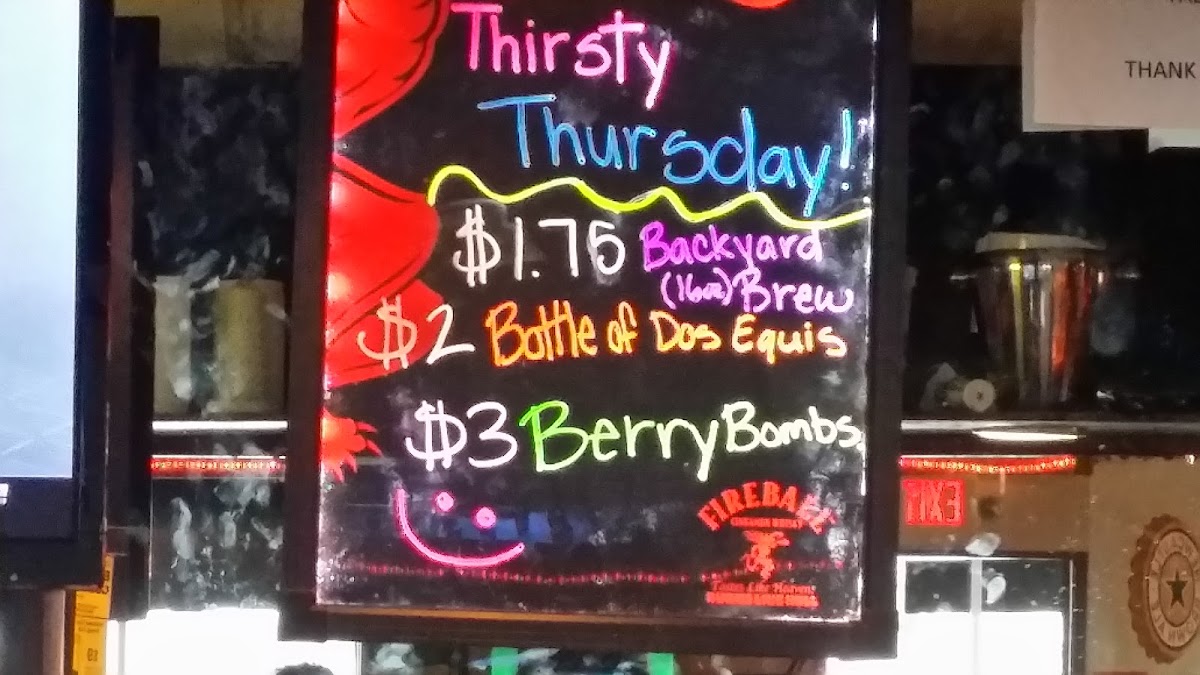 Thirsty
Thursday!
$1.75 Backyard
(16oz) Brew
$2 Bottle of Dos Equis
$3 Berry Bombs
FIREBALL
CINNAMON WHISKY
Tastes Like Heaven
THANK
EXIT